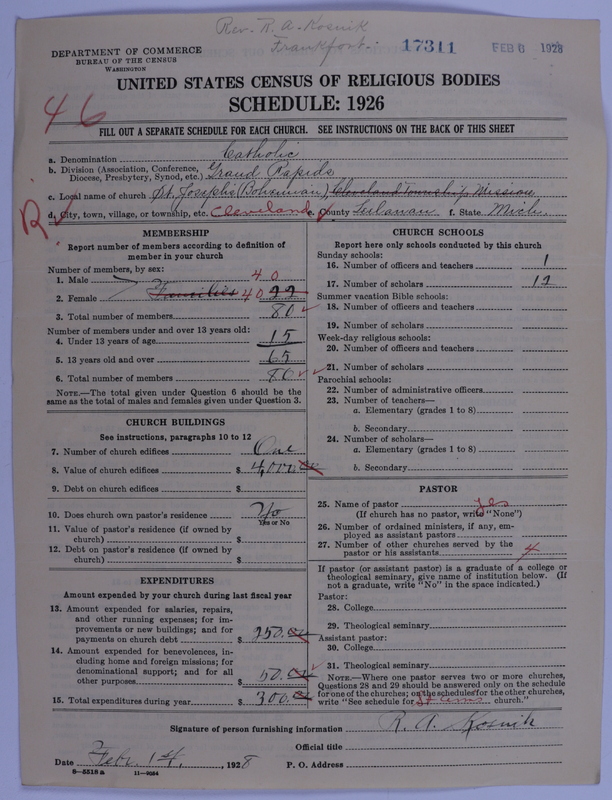 Rev. R. A. Kosnik
Frankfort.
17311
FEB 6 1928
DEPARTMENT OF COMMERCE
BUREAU OF THE CENSUS
WASHINGTON
UNITED STATES CENSUS OF RELIGIOUS BODIES
SCHEDULE: 1926
46
FILL OUT A SEPARATE SCHEDULE FOR EACH CHURCH. SEE INSTRUCTIONS ON THE BACK OF THIS SHEET
a. Denomination Catholic
b. Division (Association, Conference, Diocese, Presbytery, Synod, etc.) Grand Rapids
c. Local name of church St. Josephs (Bohemian), Cleveland Township Mission
R
d. City, town, village, or township, etc. Cleveland e. County f. State Mich.
MEMBERSHIP
Report number of members according to definition of
member in your church
Number of members, by sex:
1. Male 40
2. Female Families 40 22
3. Total number of members 80
Number of members under and over 13 years old:
4. Under 13 years of age 15
5. 13 years old and over 65
6. Total number of members 80
NOTE.—The total given under Question 6 should be
same as the total of males and females given under Question 3.
CHURCH BUILDINGS
See instructions, paragraphs 10 to 12
7. Number of church edifices One
8. Value of church edifices $ 4,000.00
9. Debt on church edifices $
10. Does church own pastor's residence No
Yes or No
11. Value of pastor's residence (if owned by
church) $
12. Debt on pastor's residence (if owned by
church) $
EXPENDITURES
Amount expended by your church during last fiscal year
13. Amount expended for salaries, repairs,
and other running expenses; for im-
provements or new buildings; and for
payments on church debt $ 250.00
14. Amount expended for benevolences, in-
cluding home and foreign missions; for
denominational support; and for all
other purposes $ 50.00
15. Total expenditures during year $ 300.00
CHURCH SCHOOLS
Report here only schools conducted by this church
Sunday schools:
16. Number of officers and teachers 1
17. Number of scholars 12
Summer vacation Bible schools:
18. Number of officers and teachers
19. Number of scholars
Week-day religious schools:
20. Number of officers and teachers
21. Number of scholars
Parochial schools:
22. Number of administrative officers
23. Number of teachers—
a. Elementary (grades 1 to 8)
b. Secondary
24. Number of scholars—
a. Elementary (grades 1 to 8)
b. Secondary
PASTOR
25. Name of pastor yes
(If church has no pastor, write "None")
26. Number of ordained ministers, if any, em-
ployed as assistant pastors
27. Number of other churches served by the
pastor or his assistants 4
If pastor (or assistant pastor) is a graduate of a college or
theological seminary, give name of institution below. (If
not a graduate, write "No" in the space indicated.)
Pastor:
28. College
29. Theological seminary
Assistant pastor:
30. College
31. Theological seminary
NOTE.—Where one pastor serves two or more churches,
Questions 28 and 29 should be answered only on the schedule
for one of the churches; on the schedules for the other churches,
write "See schedule for St Anns church."
Signature of person furnishing information R. A. Kosnik
Official title
Date Febr. 1st, 1928 P. O. Address
8—5518 a 11—9054